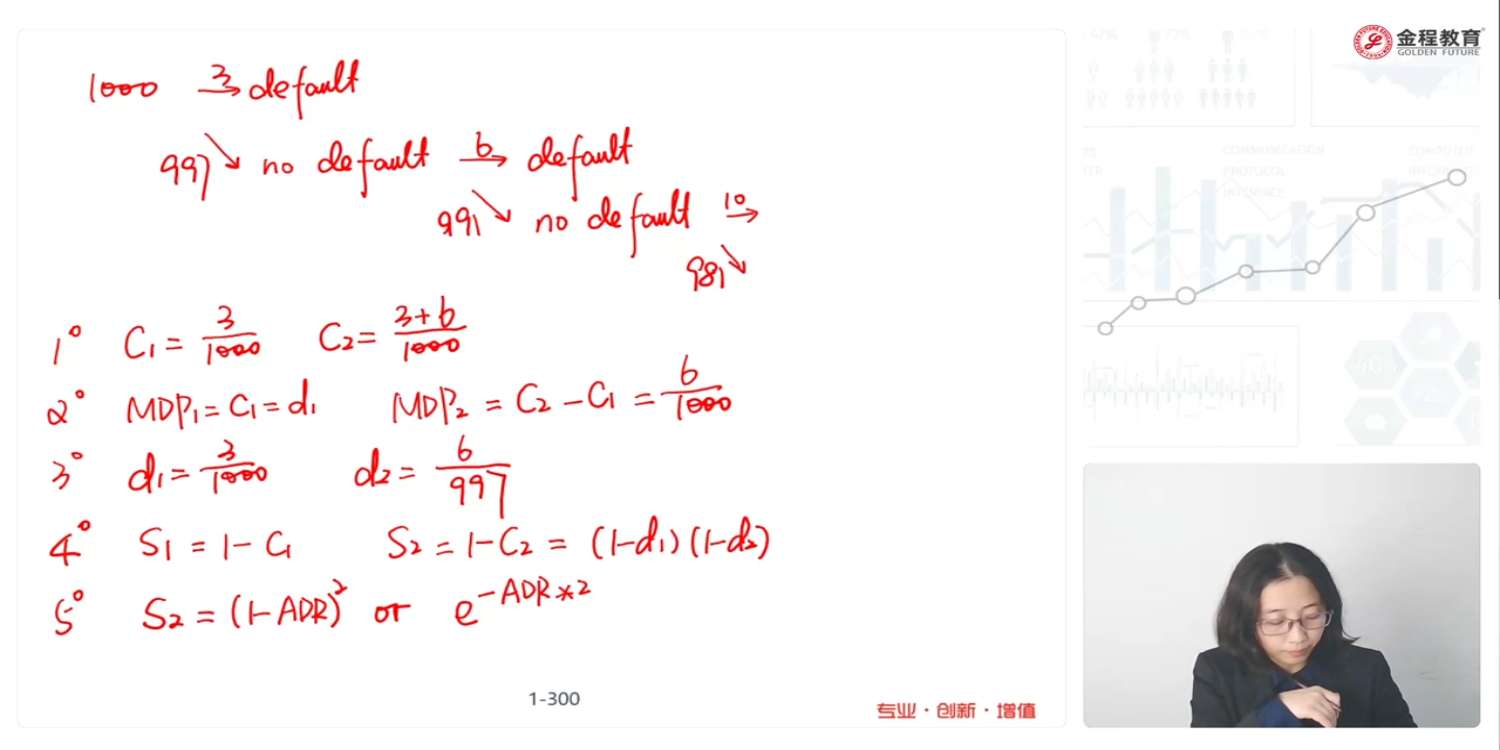 金程教育
GOLDEN FUTURE
1000 3→ default
997↘ no default 6→ default
991↘ no default 10→
981↘
1° C₁ = 3/1000 C₂ = 3+6/1000
2° MDP₁ = C₁ = d₁ MDP₂ = C₂ − C₁ = 6/1000
3° d₁ = 3/1000 d₂ = 6/997
4° S₁ = 1 − C₁ S₂ = 1 − C₂ = (1−d₁)(1−d₂)
5° S₂ = (1−ADR)² or e^−ADR*2
1-300
专业·创新·增值